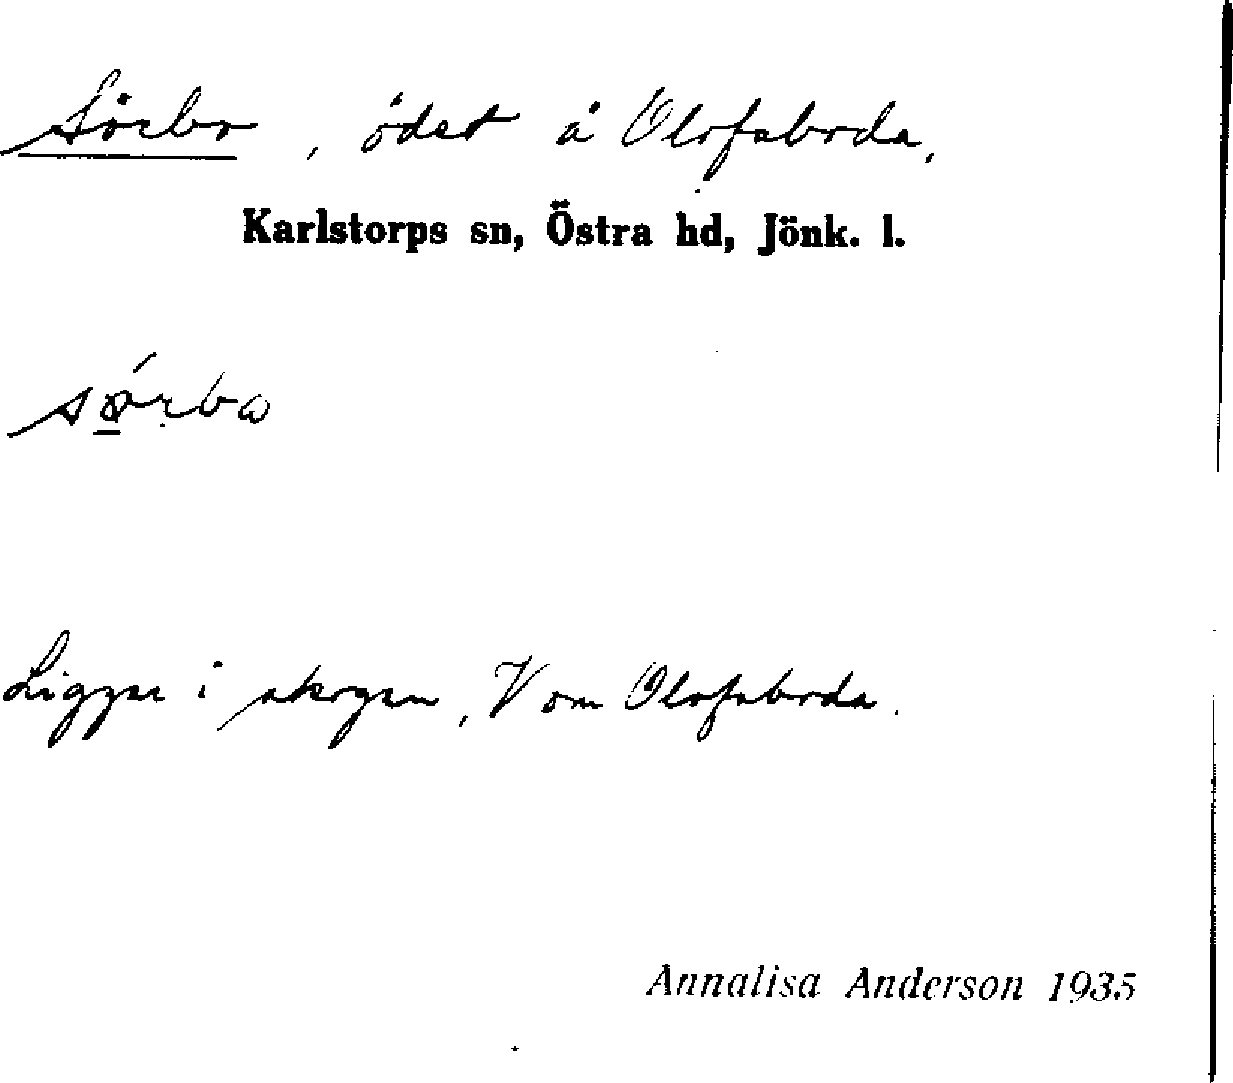 Sörbo, ödet å Olofsboda.
Karlstorps sn, Östra hd, Jönk. l.
Ligger i skogen, V om Olofsboda.
Annalisa Anderson 1935